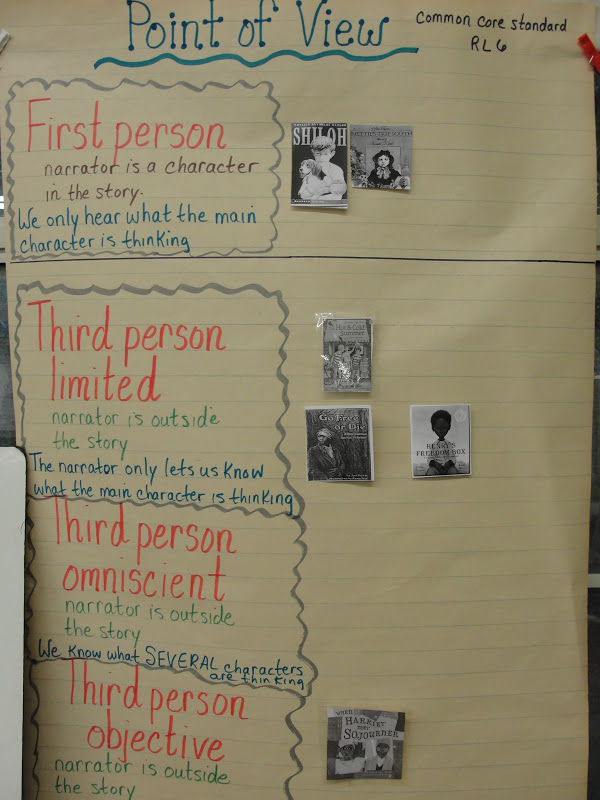 Point of View
Common core standard
RL 6
First person
narrator is a character
in the story.
We only hear what the main
character is thinking
SHILOH
Third person
limited
narrator is outside
the story
The narrator only lets us know
what the main character is thinking
Hot & Cold
Summer
Go Free
or Die
HENRY'S
FREEDOM BOX
Third person
omniscient
narrator is outside
the story
We know what SEVERAL characters
are thinking
Third person
objective
narrator is outside
the story
when
HARRIET
met
SOJOURNER